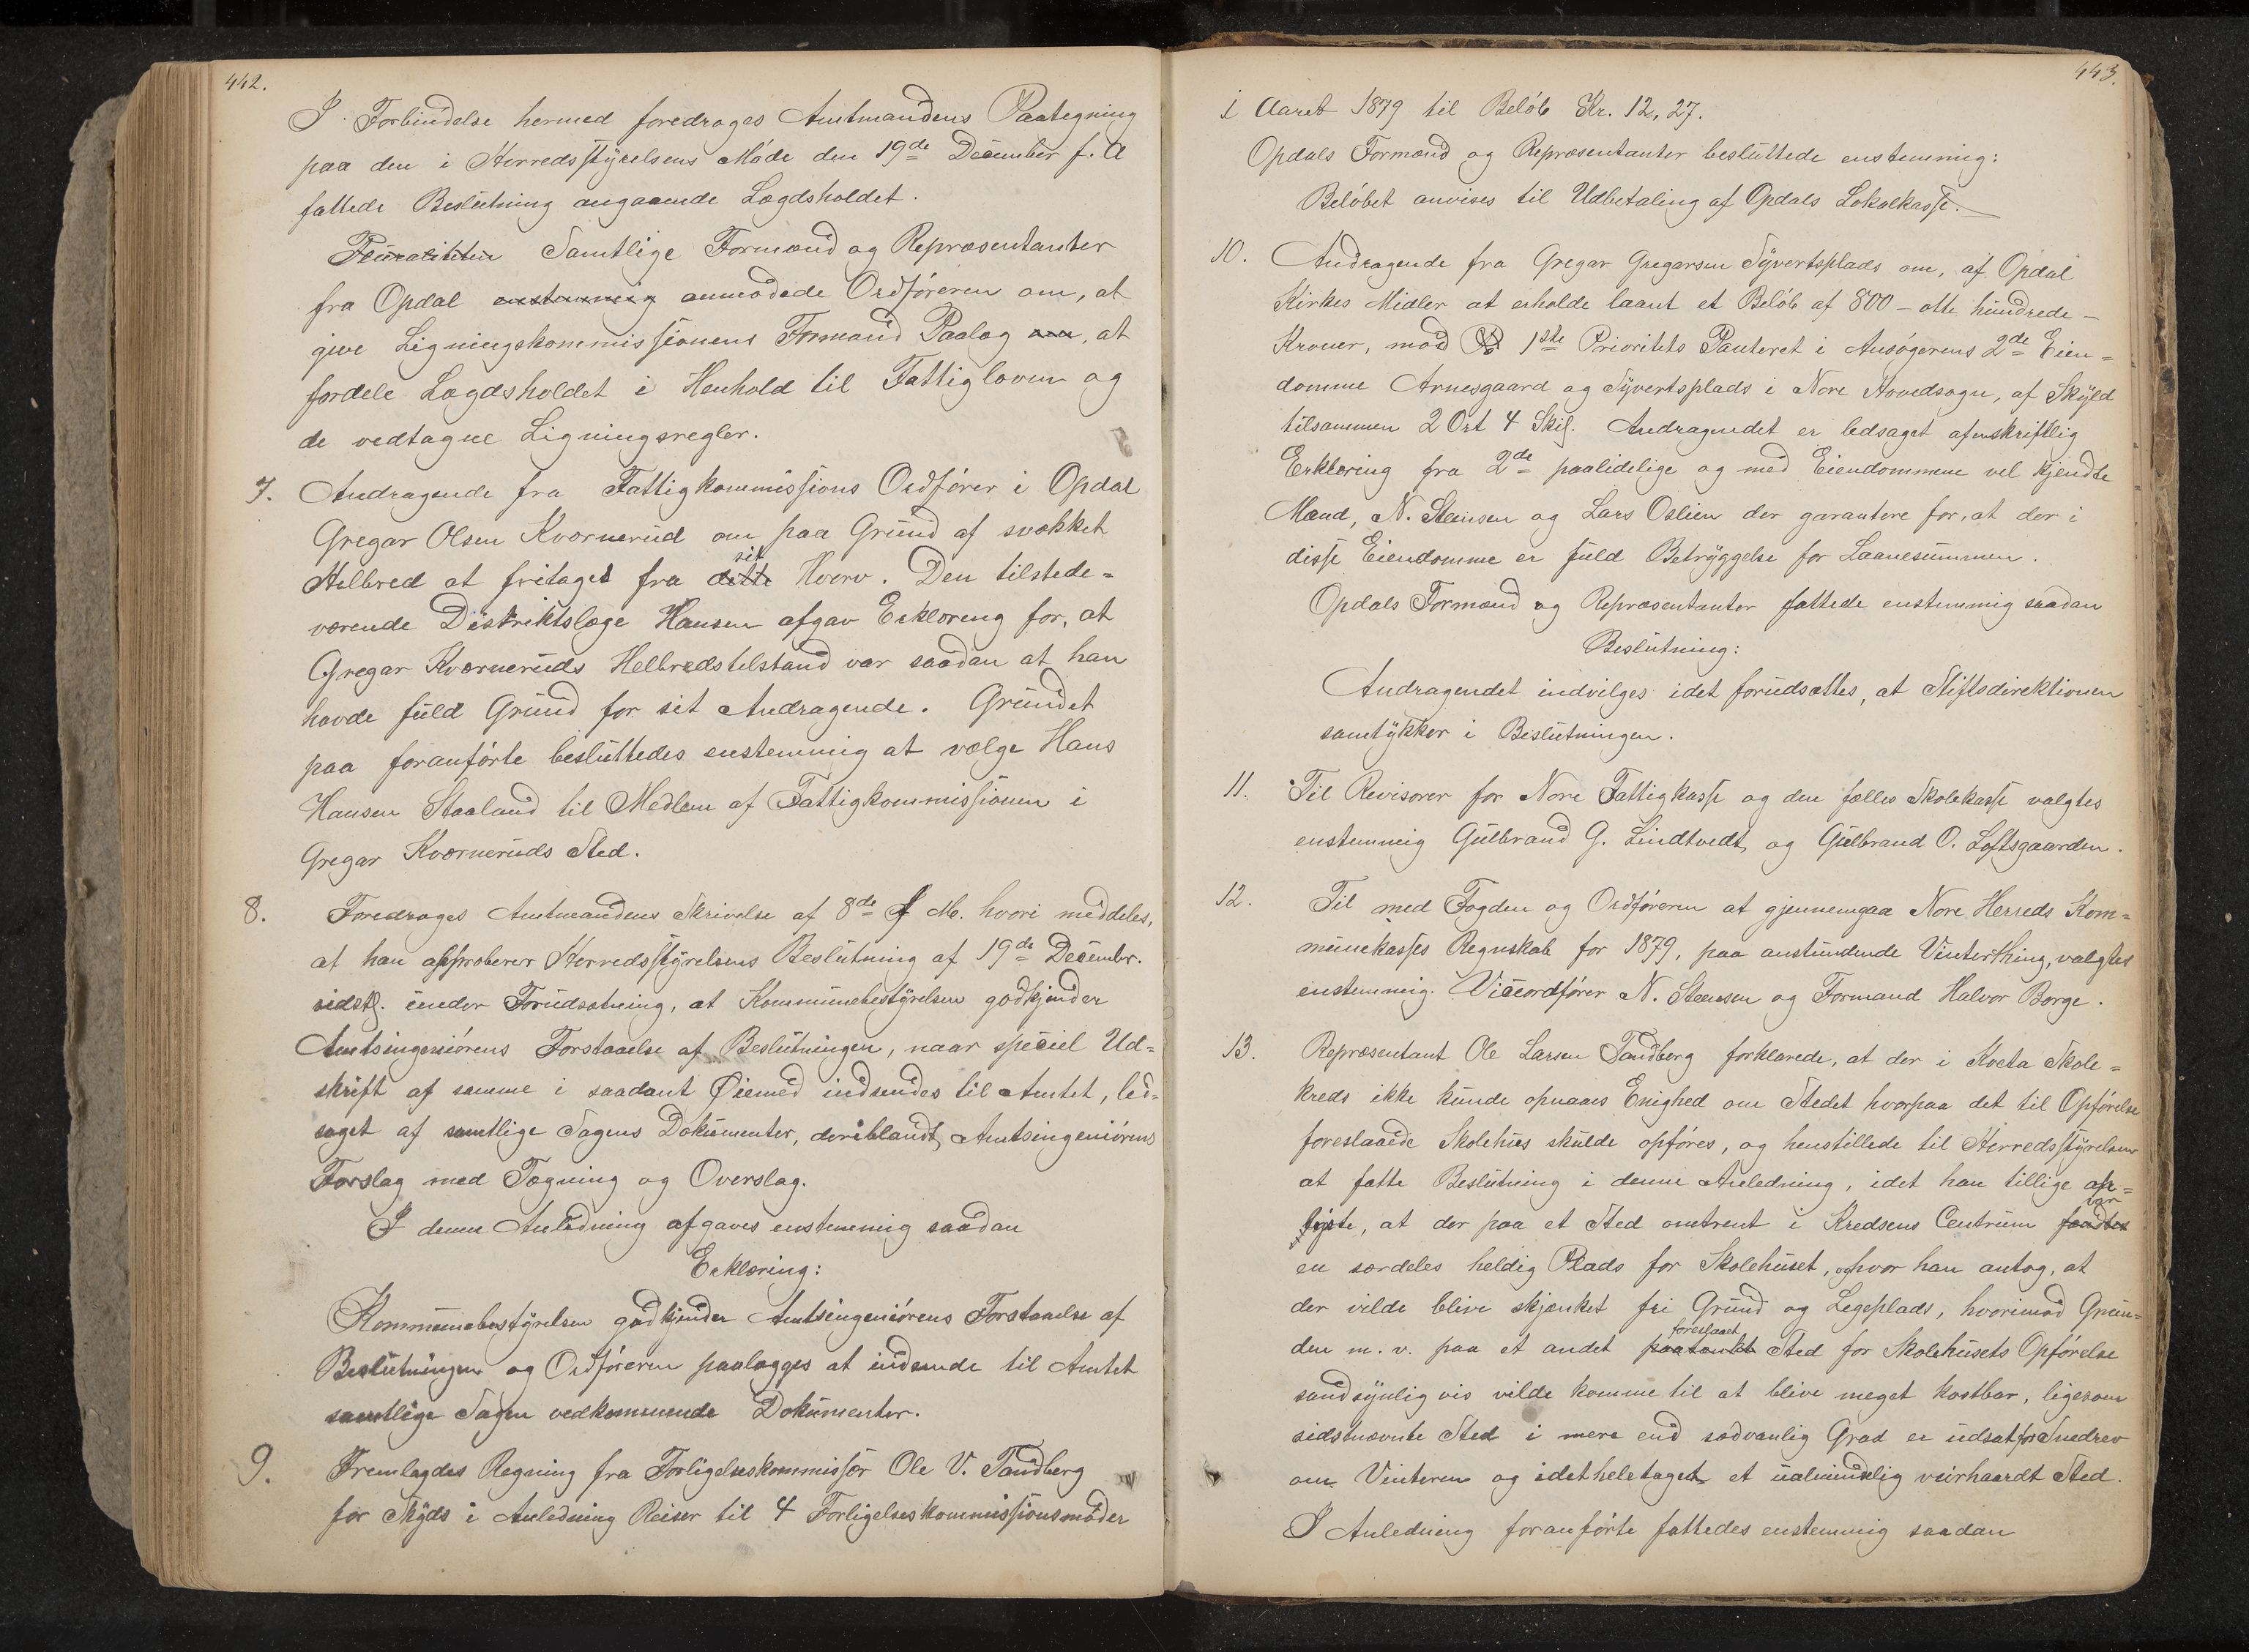 442.
I Forbindelse hermed foredroges Amtmandens Paategning
paa den i Herredsstyrelsens Møde den 19de December f. A
fattede Beslutning angaaende Lægdsholdet.
Pluraliteten Samtlige Formænd og Repræsentanter
fra Opdal enstemmig anmodede Ordføreren om, at
give Ligningskommissionens Formand Paalæg om, at
fordele Lægdsholdet i Henhold til Fattigloven og
de vedtagne Ligningsregler.
7. Andragende fra Fattigkommissions Ordfører i Opdal
Gregar Olsen Kværnerud om paa Grund af svækket
Helbred at fritages fra dette sit Hverv. Den tilstede-
værende Distriktslæge Hansen afgav Erklæring for, at
Gregar Kværneruds Helbredstilstand var saadan at han
havde fuld Grund for sit Andragende. Grundet
paa foranførte besluttedes enstemmig at vælge Hans
Hansen Staaland til Medlem af Fattigkommissionen i
Gregar Kværneruds Sted.
8. Foredroges Amtmandens Skrivelse af 8de f M. hvori meddeles,
at han approberer Herredsstyrelsens Beslutning af 19de Decembr.
sidstl. under Forudsætning, at Kommunebestyrelsen godkjender
Amtsingeniørens Forstaaelse af Beslutningen, naar speciel Ud-
skrift af samme i saadant Øiemed indsendes til Amtet, led-
saget af samtlige Sagens Dokumenter, deriblandt Amtsingeniørens
Forslag med Tegning og Overslag.
I denne Anledning afgaves enstemmig saadan
Erklæring:
Kommunebestyrelsen godkjender Amtsingeniørens Forstaaelse af
Beslutningen og Ordføreren paalægges at indsende til Amtet
samtlige Sagen vedkommende Dokumenter.
9. Fremlagdes Regning fra Forligelseskommissær Ole V. Tandberg
for Skyds i Anledning Reiser til 4 Forligelseskommissionsmøder
443.
i Aaret 1879 til Beløb Kr. 12,27.
Opdals Formænd og Repræsentanter besluttede enstemmig:
Beløbet anvises til Udbetaling af Opdals Lokalkasse.
10. Andragende fra Gregar Gregarsen Syvertsplads om, af Opdal
Kirkes Midler at erholde laant et Beløb af 800 – otte hundrede –
Kroner, mod 1ste Prioritets Panteret i Ansøgerens 2de Eien-
domme Arnesgaard og Syvertsplads i Nore Hovedsogn, af Skyld
tilsammen 2 Ort 4 Skil. Andragendet er ledsaget af en skriftlig
Erklæring fra 2de paalidelige og med Eiendommene vel kjendte
Mænd, N. Steensen og Lars Oslien der garantere for, at der i
disse Eiendomme er fuld Betryggelse for Laanesummen.
Opdals Formænd og Repræsentanter fattede enstemmig saadan
Beslutning:
Andragendet indvilges idet forudsættes, at Stiftsdirektionen
samtykker i Beslutningen.
11. Til Revisorer for Nore Fattigkasse og den fælles Skolekasse valgtes
enstemmig Gulbrand G. Lindtvedt og Gulbrand O. Loftsgaarden.
12. Til med Fogden og Ordføreren at gjennemgaa Nore Herreds Kom-
munekasses Regnskab for 1879, paa anstundende Vinterthing, valgtes
enstemmig Viceordfører N. Steensen og Formand Halvor Borge.
13. Repræsentant Ole Larsen Tandberg forklarede, at der i Kveta Skole-
kreds ikke kunde opnaaes Enighed om Stedet hvorpaa det til Opførelse
foreslaaede Skolehus skulde opføres, og henstillede til Herredsstyrelsen
at fatte Beslutning i denne Anledning, idet han tillige op-
lyste, at der paa et Sted omtrent i Kredsens Centrum fandtes var
en særdeles heldig Plads for Skolehuset, og hvor han antog, at
der vilde blive skjænket fri Grund og Legeplads, hvorimod Grun-
den m. v. paa et andet paatænkt foreslaaet Sted for Skolehusets Opførelse
sandsynligvis vilde komme til at blive meget kostbar, ligesom
sidstnævnte Sted i mere end sædvanlig Grad er udsat for Snedrev
om Vinteren og idetheletaget et ualmindelig veirhaardt Sted.
I Anledning foranførte fattedes enstemmig saadan